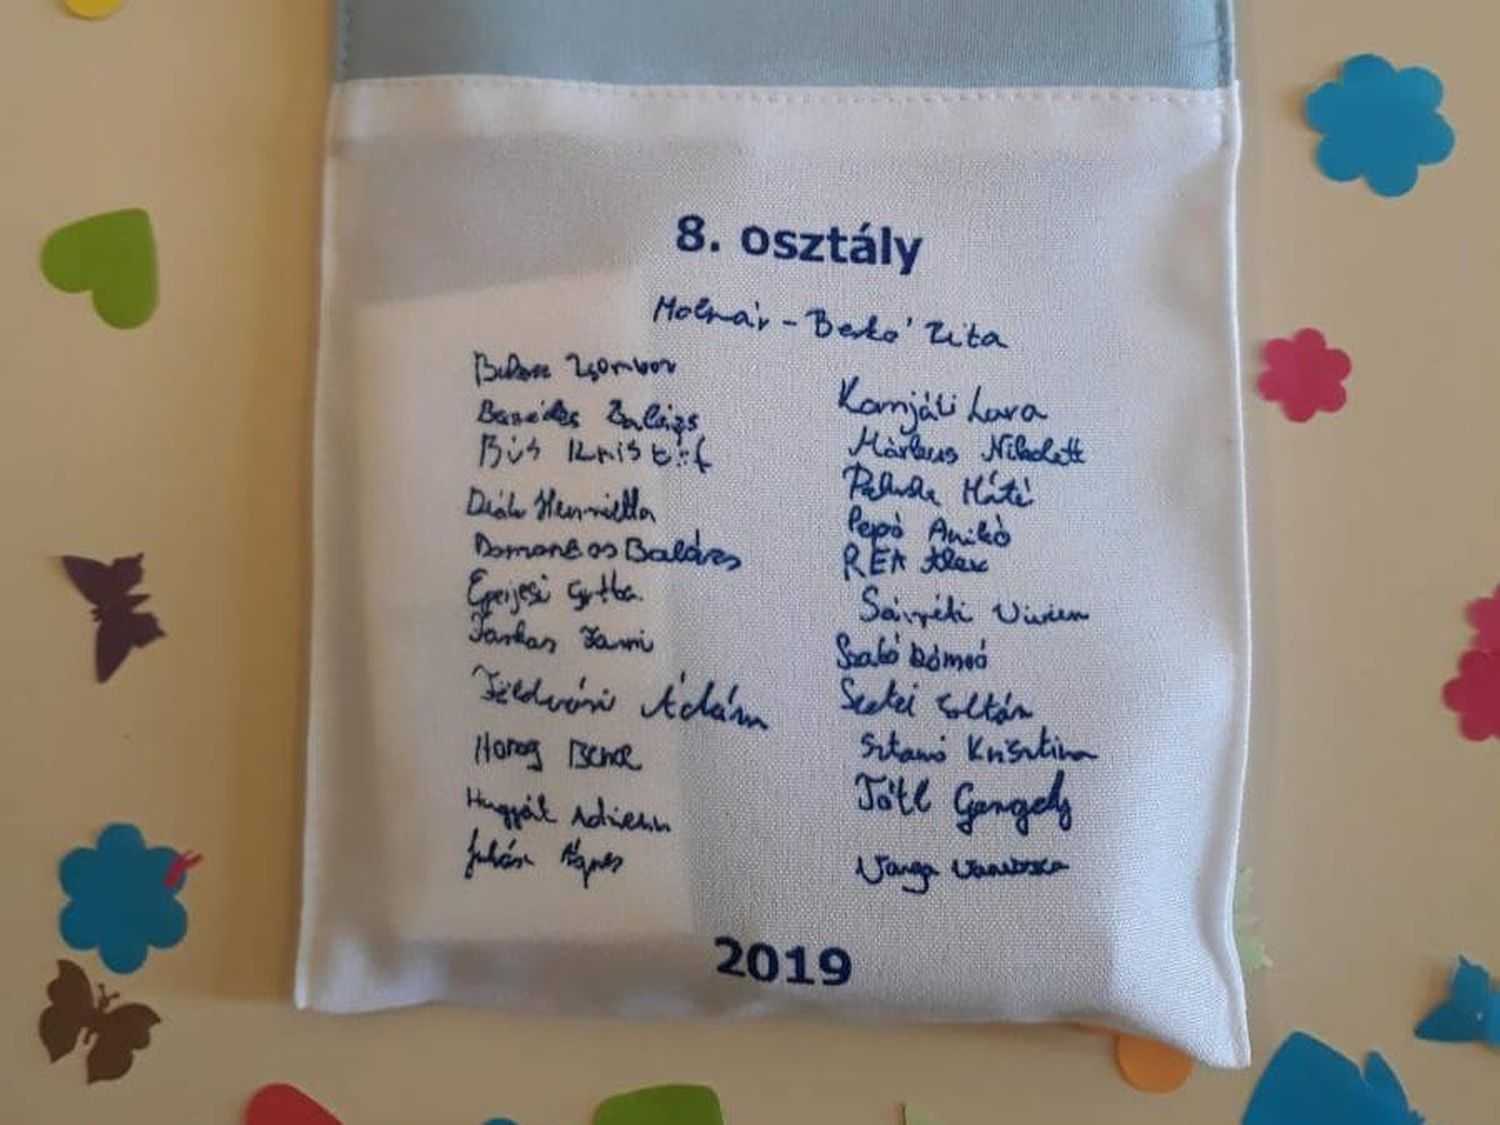 8. osztály
Molnár-Berkó Zita
Zsombor
Balázs
Bús Kristóf
Deák Henrietta
Domonkos Balázs
Eperjesi Gitta
Farkas Fanni
Földvári Ádám
Horog Bence
Hugyát Adrienn
Juhász Ágnes
Komjáti Lara
Márkus Nikolett
Máté
Pepó Anikó
REA Alex
Sárréti Vivien
Szabó Dómnó
Szekei Zoltán
Sztanó Krisztina
Tóth Gergely
Varga Vanessza
2019